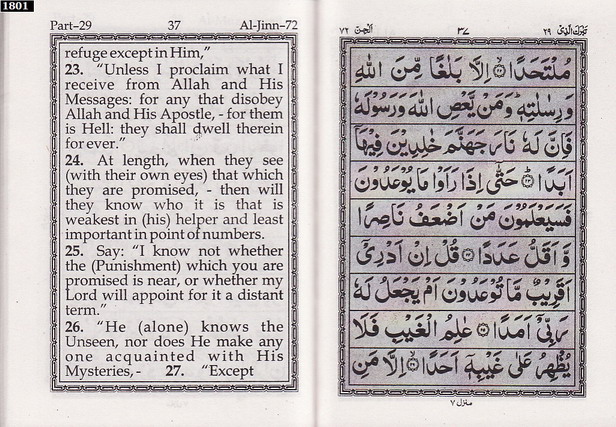 1801
Part–29 37 Al-Jinn–72
refuge except in Him,”
23. “Unless I proclaim what I
receive from Allah and His
Messages: for any that disobey
Allah and His Apostle, - for them
is Hell: they shall dwell therein
for ever.”
24. At length, when they see
(with their own eyes) that which
they are promised, - then will
they know who it is that is
weakest in (his) helper and least
important in point of numbers.
25. Say: “I know not whether
the (Punishment) which you are
promised is near, or whether my
Lord will appoint for it a distant
term.”
26. “He (alone) knows the
Unseen, nor does He make any
one acquainted with His
Mysteries,- 27. “Except
تبٰرك الذی ۲۹ ۳۷ الجن ۷۲
مُلْتَحَدًا ۝۲۲ اِلَّا بَلٰغًا مِّنَ اللّٰهِ
وَرِسٰلٰتِهٖ ؕ وَمَنْ يَّعْصِ اللّٰهَ وَرَسُوْلَهٗ
فَاِنَّ لَهٗ نَارَ جَهَنَّمَ خٰلِدِيْنَ فِيْهَاۤ
اَبَدًا ۝۲۳ حَتّٰۤى اِذَا رَاَوْا مَا يُوْعَدُوْنَ
فَسَيَعْلَمُوْنَ مَنْ اَضْعَفُ نَاصِرًا
وَّ اَقَلُّ عَدَدًا ۝۲۴ قُلْ اِنْ اَدْرِىْۤ
اَقَرِيْبٌ مَّا تُوْعَدُوْنَ اَمْ يَجْعَلُ لَهٗ
رَبِّىْۤ اَمَدًا ۝۲۵ عٰلِمُ الْغَيْبِ فَلَا
يُظْهِرُ عَلٰى غَيْبِهٖۤ اَحَدًا ۝۲۶ اِلَّا مَنِ
منزل ۷